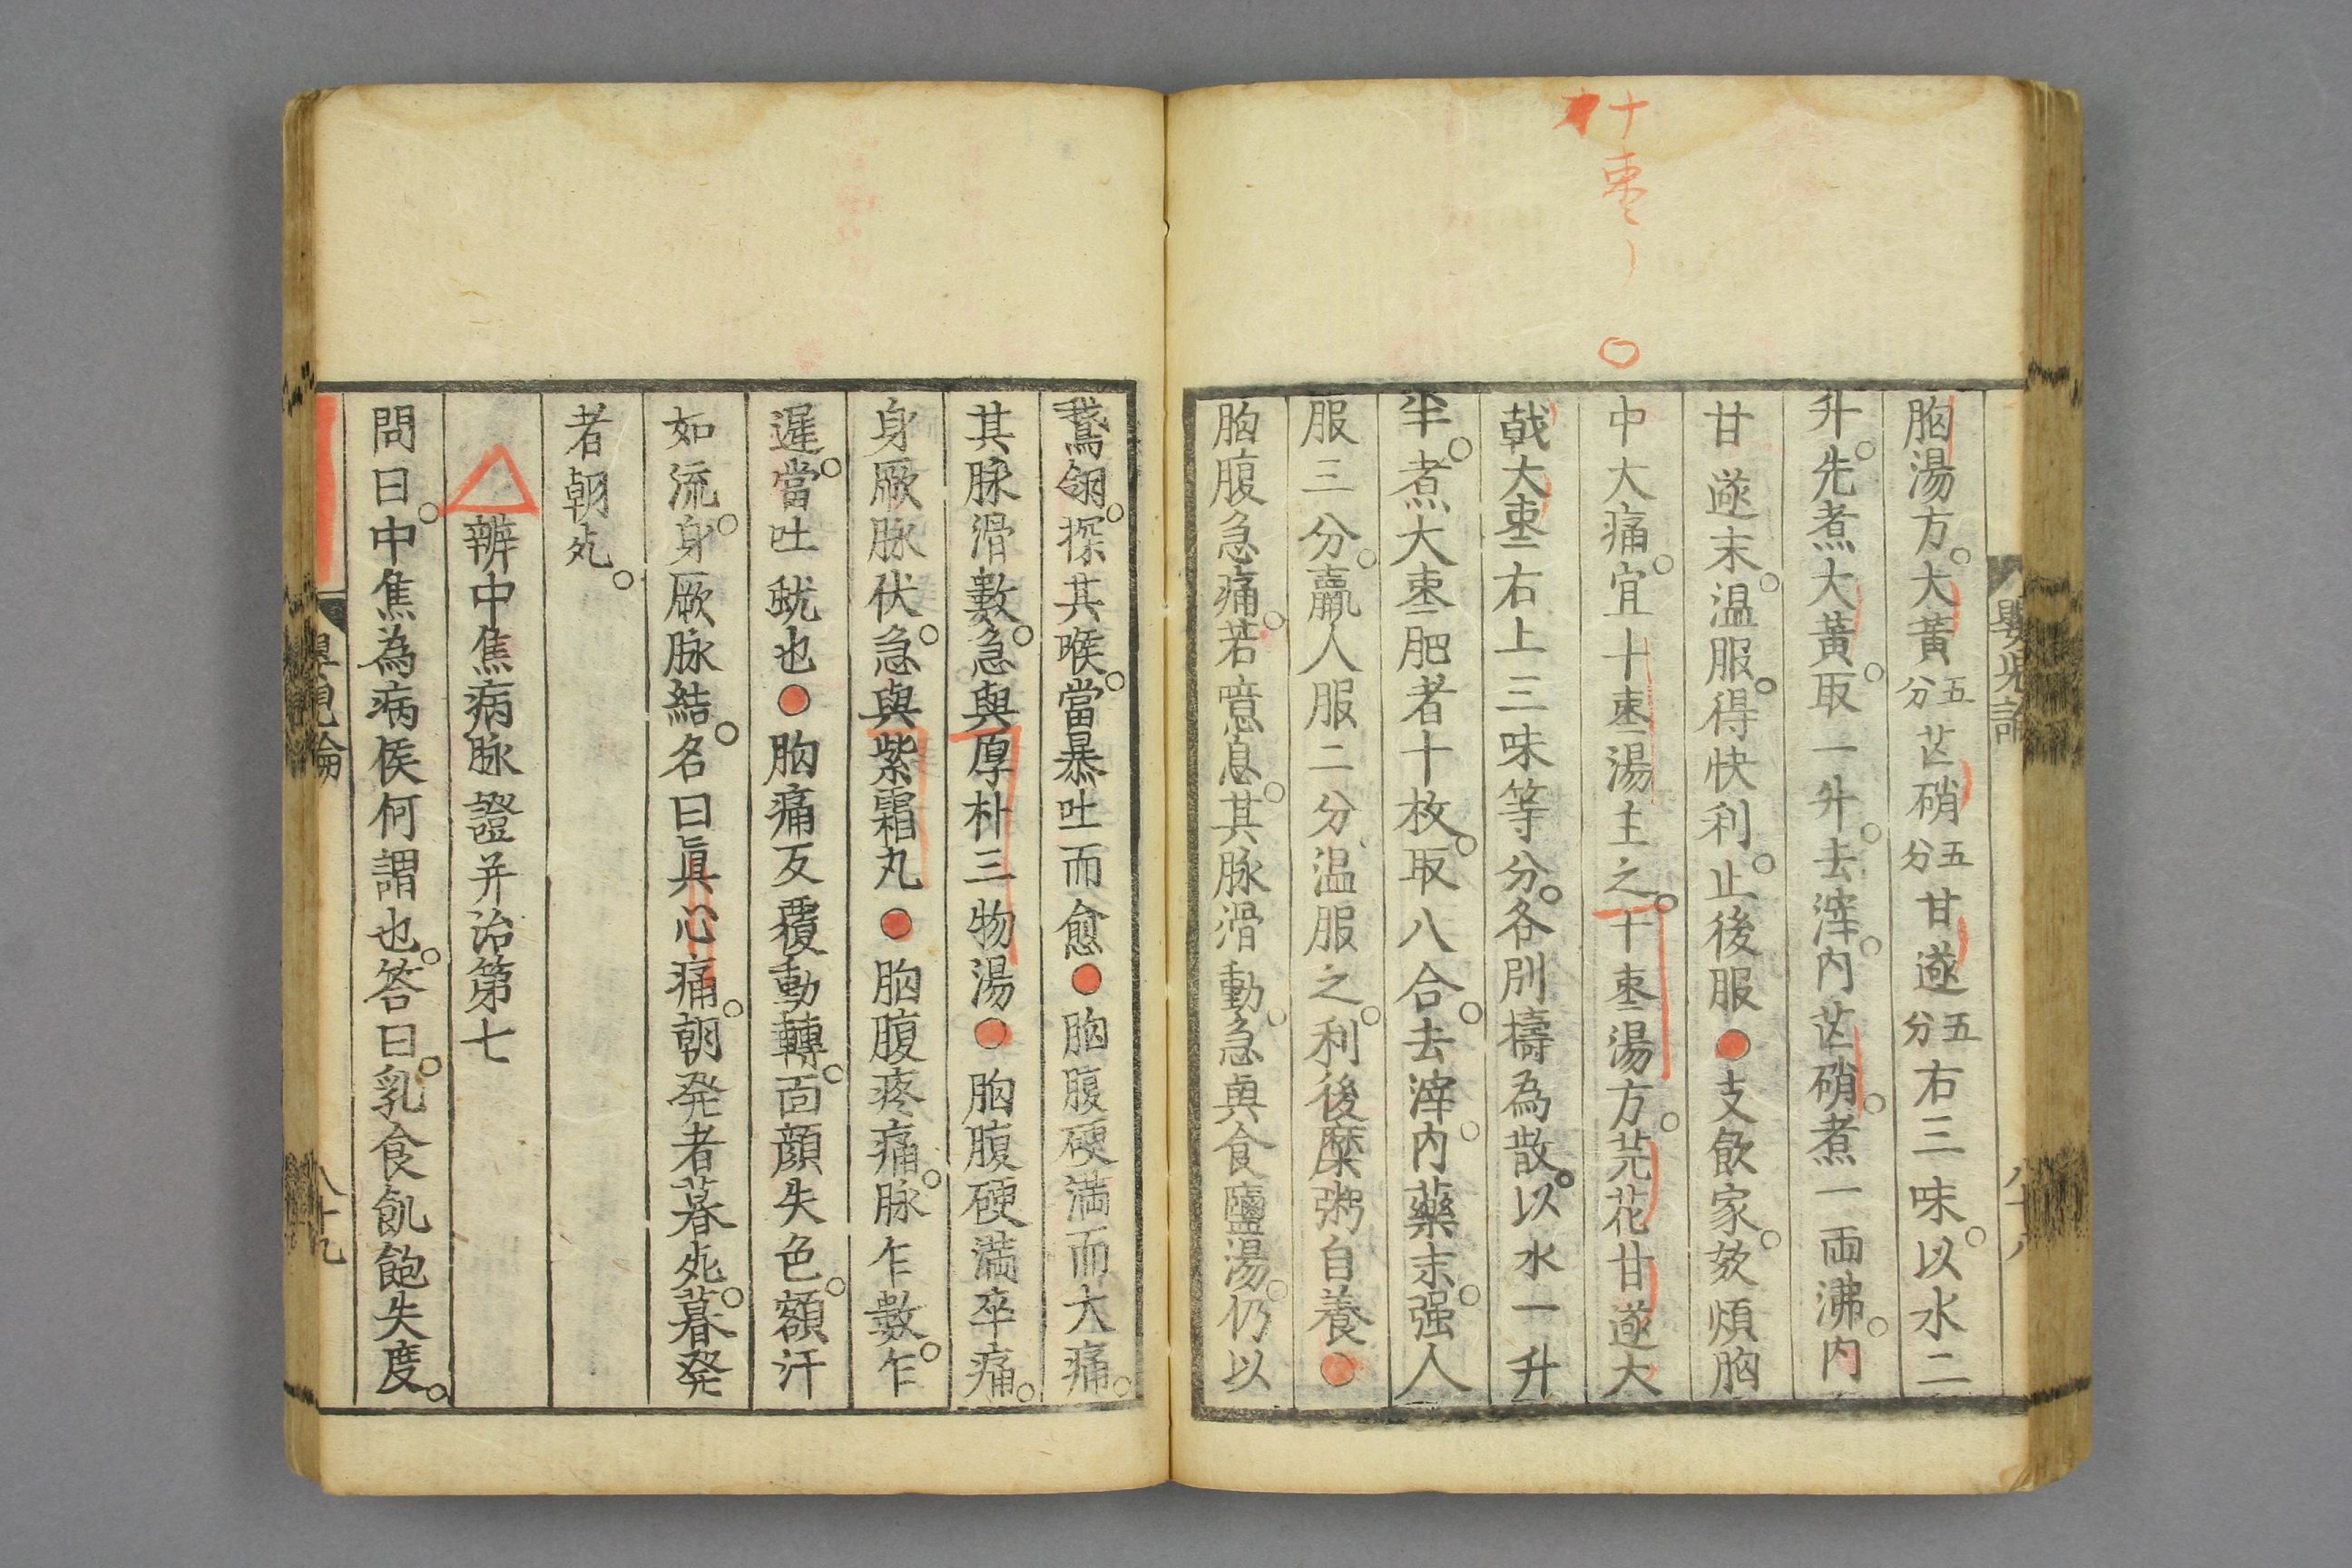 十棗
胸湯方。大黃五分芒硝五分甘遂五分右三味。以水二
升。先煮大黃。取一升。去滓。内芒硝。煮一兩沸。内
甘遂末。温服。得快利。止後服●支飲家。欬煩胸
中大痛。宜十棗湯主之。十棗湯方。芫花甘遂大
戟大棗右上三味等分。各別擣為散。以水一升
半。煮大棗肥者十枚。取八合。去滓。内藥末。强人
服三分。羸人服二分温服之。利後糜粥自養●
胸腹急痛。若噫息。其脉滑動。急與食鹽湯。仍以
嬰児論
八十八
鵞翎。探其喉。當暴吐而愈●胸腹硬満而大痛。
其脉滑數。急與厚朴三物湯●胸腹硬満卒痛。
身厥脉伏。急與紫霜丸●胸腹疼痛。脉乍數。乍
遲。當吐蚘也●胸痛反覆動轉。面顔失色。額汗
如流。身厥脉結。名曰眞心痛。朝発者暮死。暮発
者朝死。
辨中焦病脉證并治第七
問曰。中焦為病候何謂也。答曰。乳食飢飽失度。
八十九